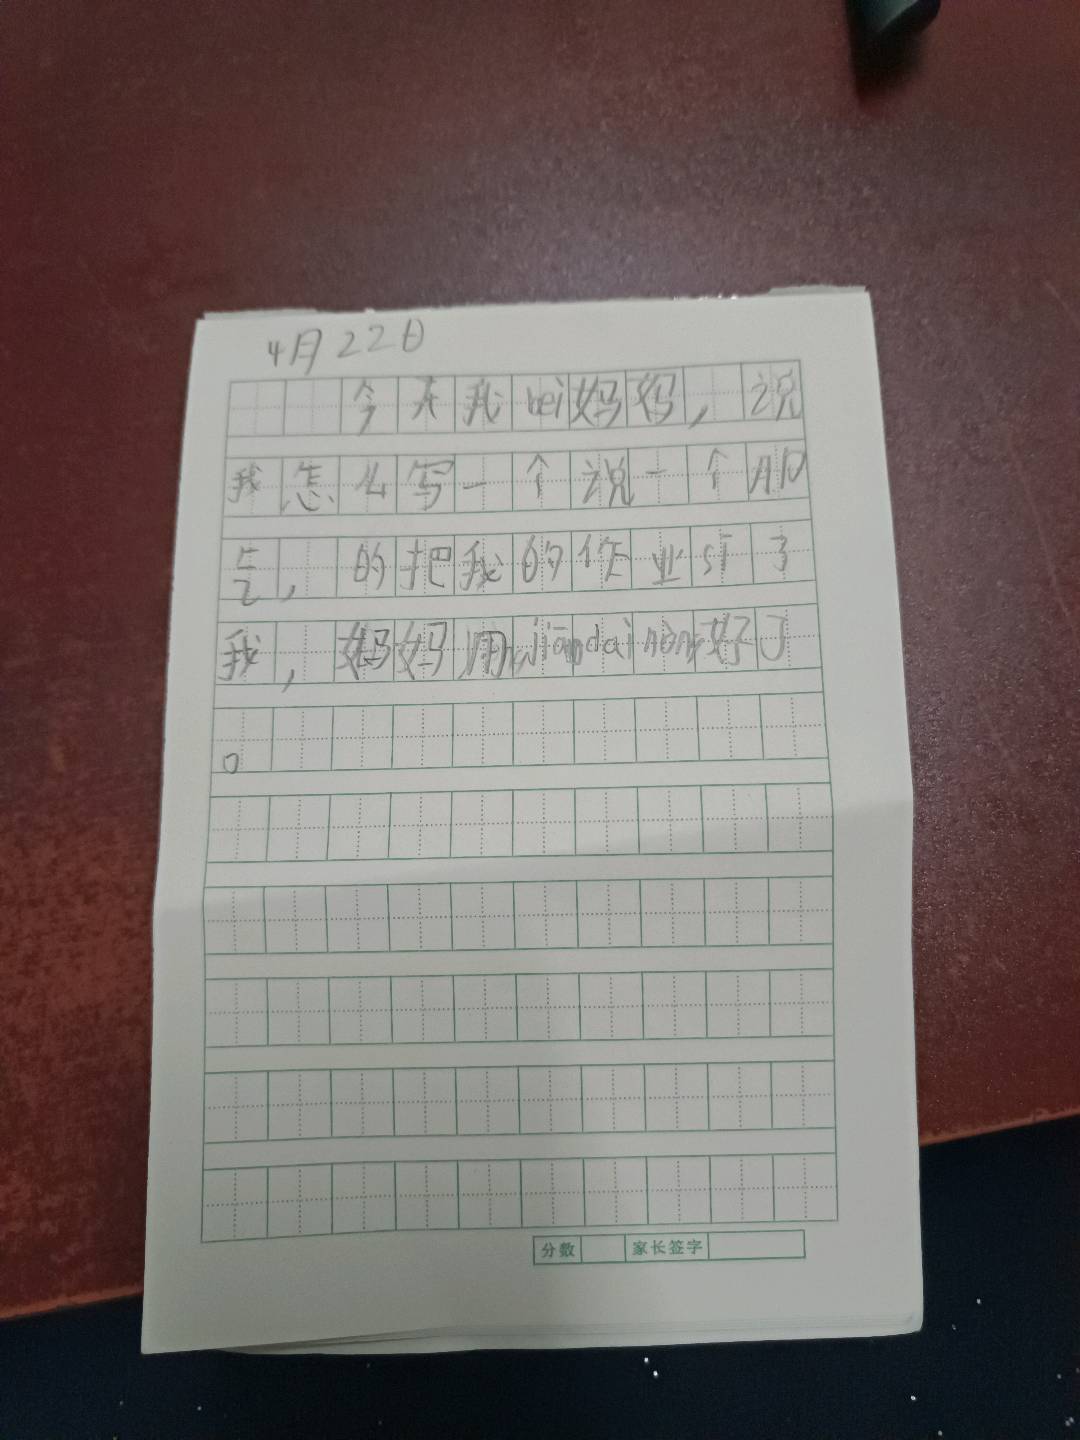 4月22日
今天我bei妈妈,说
我怎么写一个说一个
,的把我的作业si了
我,妈妈用jiaodai nòng好了
。
分数 家长签字